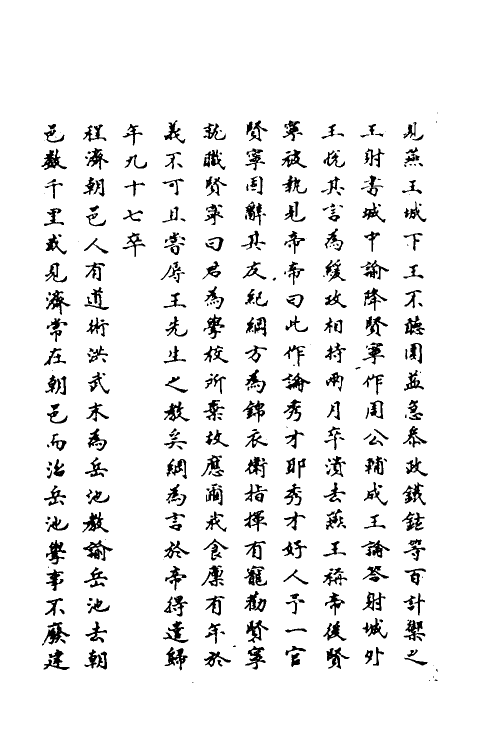 見燕王城下王不聽圍益急叅政鐵鉉等百計禦之
王射書城中諭降賢寧作周公輔成王論答射城外
王悅其言為緩攻相持兩月卒潰去燕王稱帝後賢
寧被執見帝帝曰此作論秀才耶秀才好人予一官
賢寧固辭其友紀綱方為錦衣衛指揮有寵勸賢寧
就職賢寧曰君為學校所棄故應爾我食廩有年於
義不可且嘗辱王先生之教矣綱為言於帝得遣歸
年九十七卒
程濟朝邑人有道術洪武末為岳池教諭岳池去朝
邑數千里或見濟常在朝邑而治岳池學事不廢建